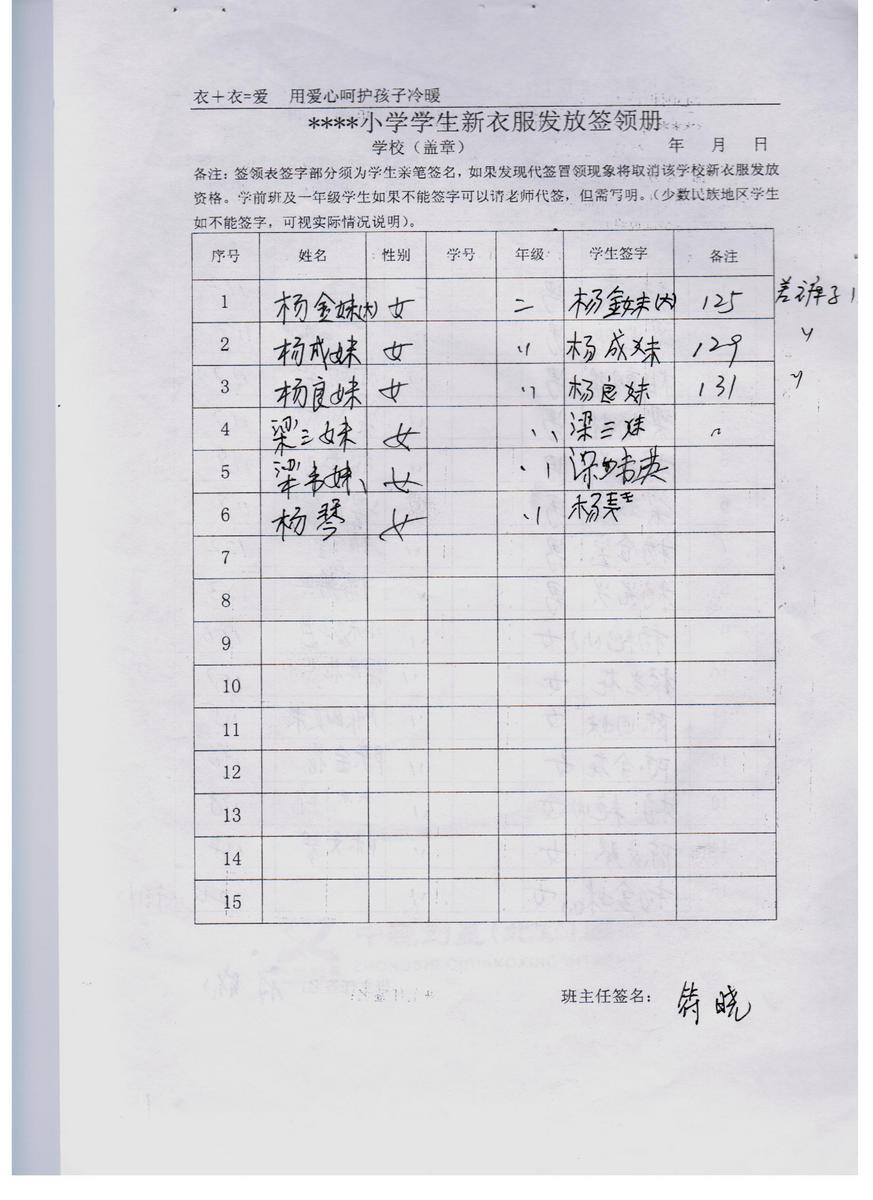 衣＋衣=爱 用爱心呵护孩子冷暖
****小学学生新衣服发放签领册
学校（盖章） 年 月 日
备注：签领表签字部分须为学生亲笔签名，如果发现代签冒领现象将取消该学校新衣服发放
资格。学前班及一年级学生如果不能签字可以请老师代签，但需写明。（少数民族地区学生
如不能签字，可视实际情况说明）。
序号 姓名 性别 学号 年级 学生签字 备注
1 杨金妹(大) 女 二 杨金妹(大) 125 差裤子1
2 杨成妹 女 〃 杨成妹 129 〃
3 杨良妹 女 〃 杨良妹 131 〃
4 梁三妹 女 〃 梁三妹 〃
5 梁 妹 女 〃
6 杨琴 女 〃 杨
7
8
9
10
11
12
13
14
15
班主任签名： 符晓